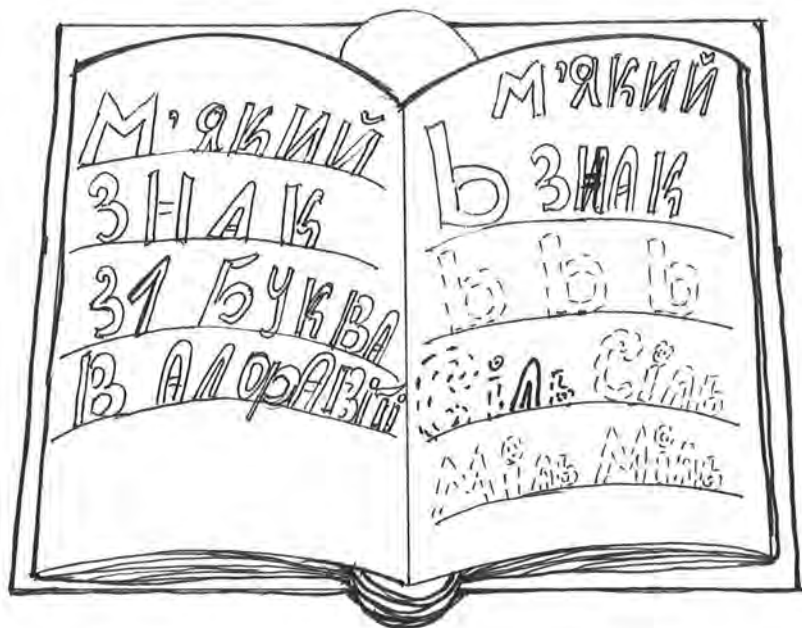 М'ЯКИЙ
ЗНАК
31 БУКВА
В АЛФАВІТІ
М'ЯКИЙ
Ь ЗНАК
Ь Ь Ь
Сіль Сіль
Міль Міль